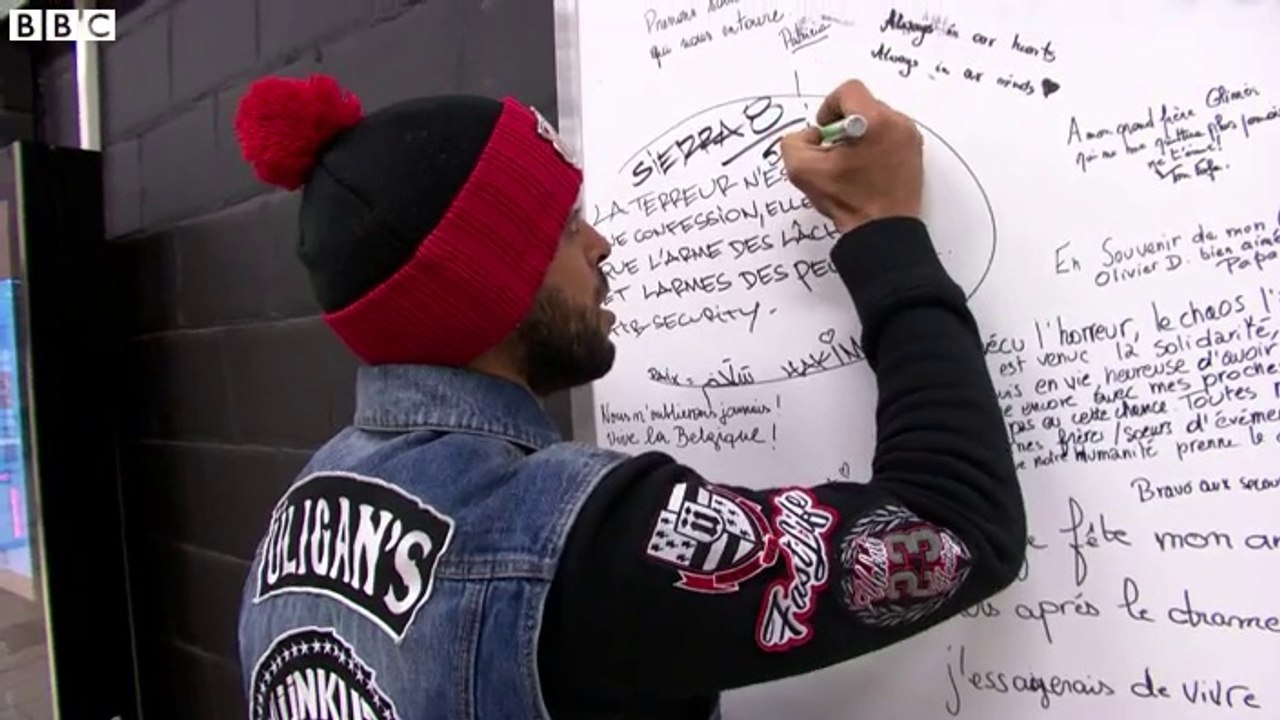 BBC
Prenons
qui nous entoure
Patricia
Always in our hearts
Always in our minds
A mon grand frère Olivier
SIERRA 8
LA TERREUR N'ES
CONFESSION, ELLE
QUE L'ARME DES LÂCH
ET LARMES DES PEU
SECURITY.
HAKIM
Nous n'oublierons jamais!
Vive la Belgique!
En Souvenir de mon
Olivier D. bien aimé
Papa
écu l'horreur, le chaos
est venue la solidarité,
en vie heureuse d'avoir
encore avec mes proche
pas eu cette chance. Toutes
mes frères/soeurs d'événem
notre humanité prenne le
Bravo aux secou
fête mon an
après le drame
j'essagerais de vivre
ÜLIGAN'S
UNKU
Fast Life
Hakim
23